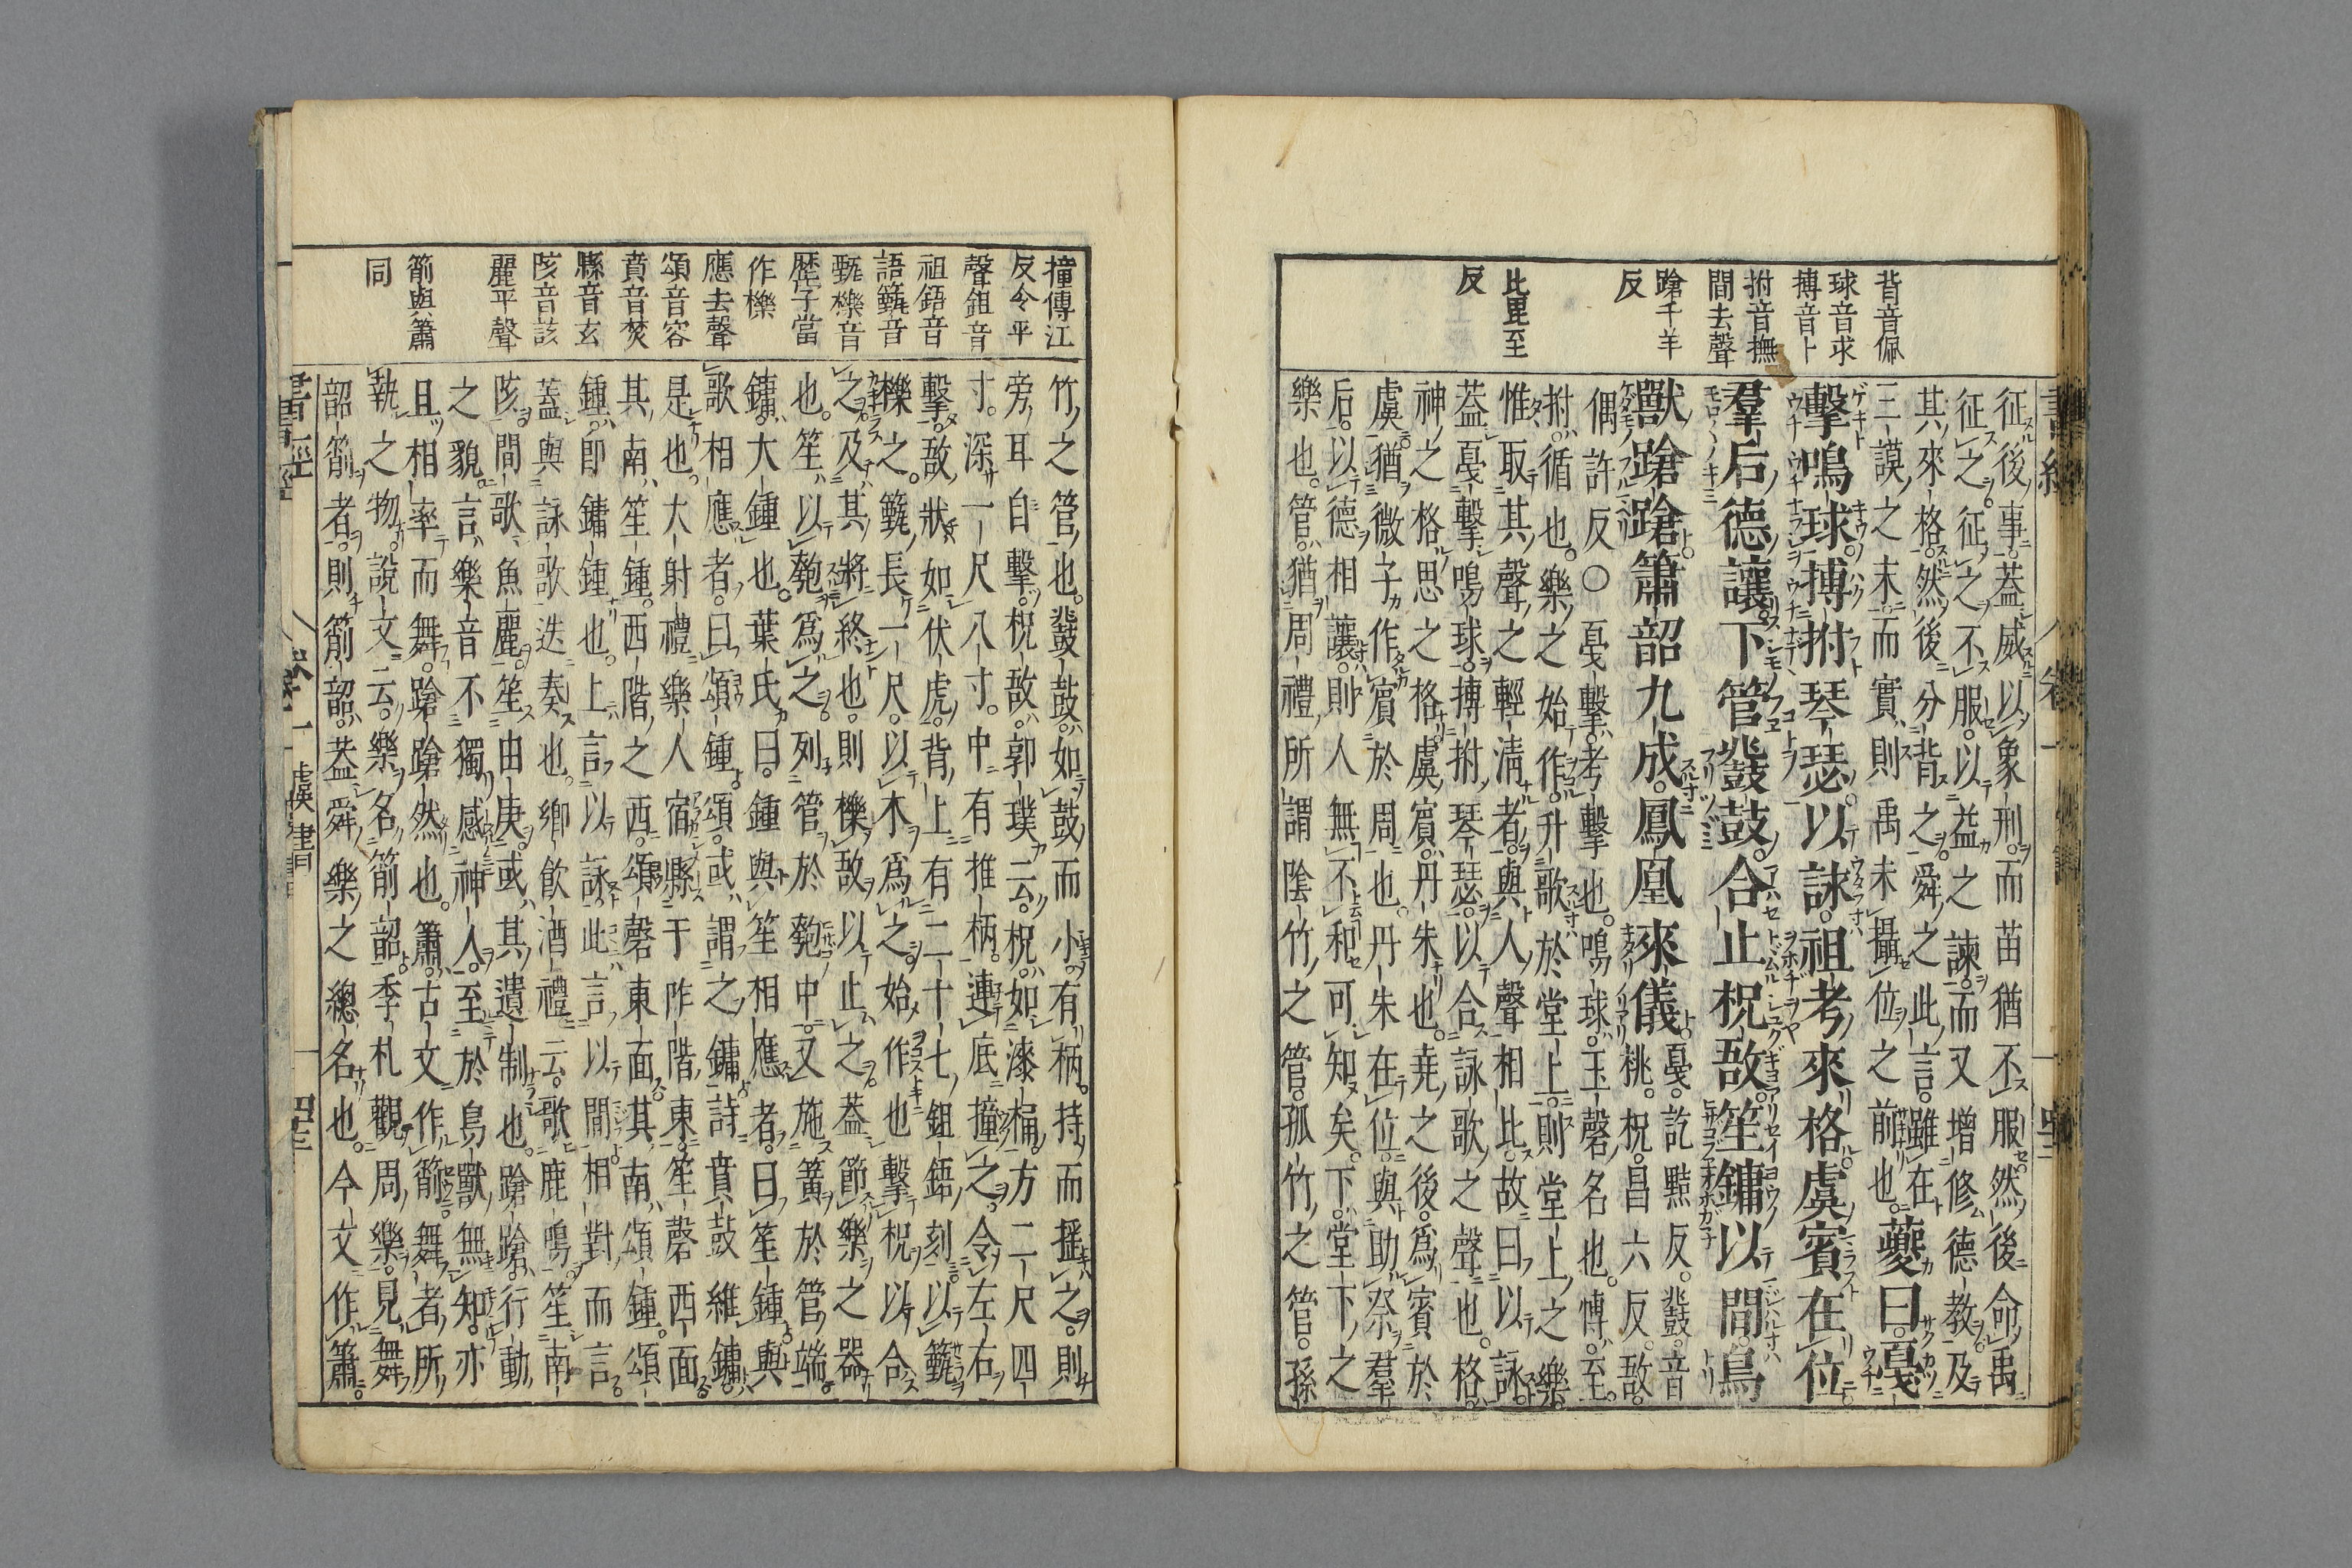 背音佩
球音求
搏音卜
拊音撫
間去聲
蹌千羊
反
比毘至
反
征後事蓋威以象刑而苗猶不服然後命禹
征之征之不服以益之諫而又增修德教及
其來格然後分背之舜之此言雖在
三謨之末而實則禹未攝位之前也夔曰戛
擊鳴球搏拊琴瑟以詠祖考來格虞賓在位
羣后德讓下管鼗鼓合止柷敔笙鏞以間鳥
獸蹌蹌簫韶九成鳳凰來儀戛訖黠反鼗音
桃柷昌六反敔
偶許反○戛擊考擊也鳴球玉磬名也愽至
拊循也樂之始作升歌於堂上則堂上之樂
惟取其聲之輕清者與人聲相比故曰以詠
蓋戛擊鳴球搏拊琴瑟以合詠歌之聲也格
神之格思之格虞賓丹朱也堯之後爲賓於
虞猶微子作賓於周也丹朱在位與助祭羣
后以德相讓則人無不和可知矣下堂下之
樂也管猶周禮所謂陰竹之管孤竹之管孫
撞傳江
反令平
聲鉏音
祖鋙音
語籈音
甄櫟音
歷子當
作櫟
應去聲
頌音容
賁音焚
縣音玄
陔音該
麗平聲
箾與簫
同
竹之管也鼗鼓如鼓而小有柄持而搖之則
旁耳自擊柷敔郭璞云柷如漆桶方二尺四
寸深一尺八寸中有椎柄連底撞之令左右
擊敔狀如伏虎背上有二十七鉏鋙刻以籈
櫟之籈長一尺以木爲之始作也擊柷以合
之及其將終也則櫟敔以止之蓋節樂之器
也笙以匏爲之列管於匏中又施簧於管端
鏞大鍾也葉氏曰鍾與笙相應者曰笙鍾與
歌相應者曰頌鍾頌或謂之鏞詩賁鼓維鏞
是也大射禮樂人宿縣于阼階東笙磬西面
其南笙鍾西階之西頌磬東面其南頌鍾頌
鍾即鏞鍾也上言以詠此言以間相對而言
蓋與詠歌迭奏也鄉飲酒禮云歌鹿鳴笙南
陔間歌魚麗笙由庚或其遺制也蹌蹌行動
之貌言樂音不獨感神人至於鳥獸無知亦
且相率而舞蹌蹌然也簫古文作箾舞者所
執之物說文云樂名箾韶季札觀周樂見舞
韶箾者則箾韶蓋舜樂之總名也今文作簫
書經 卷一 虞書